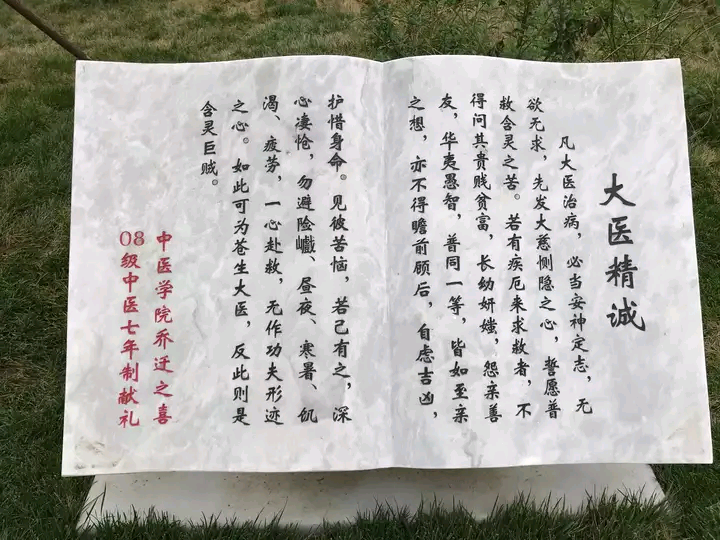 大医精诚
凡大医治病，必当安神定志，无
欲无求，先发大慈恻隐之心，誓愿普
救含灵之苦。若有疾厄来求救者，不
得问其贵贱贫富，长幼妍媸，怨亲善
友，华夷愚智，普同一等，皆如至亲
之想，亦不得瞻前顾后，自虑吉凶，
护惜身命。见彼苦恼，若己有之，深
心凄怆，勿避险巇、昼夜、寒暑、饥
渴、疲劳，一心赴救，无作功夫形迹
之心。如此可为苍生大医，反此则是
含灵巨贼。
中医学院乔迁之喜
08级中医七年制献礼